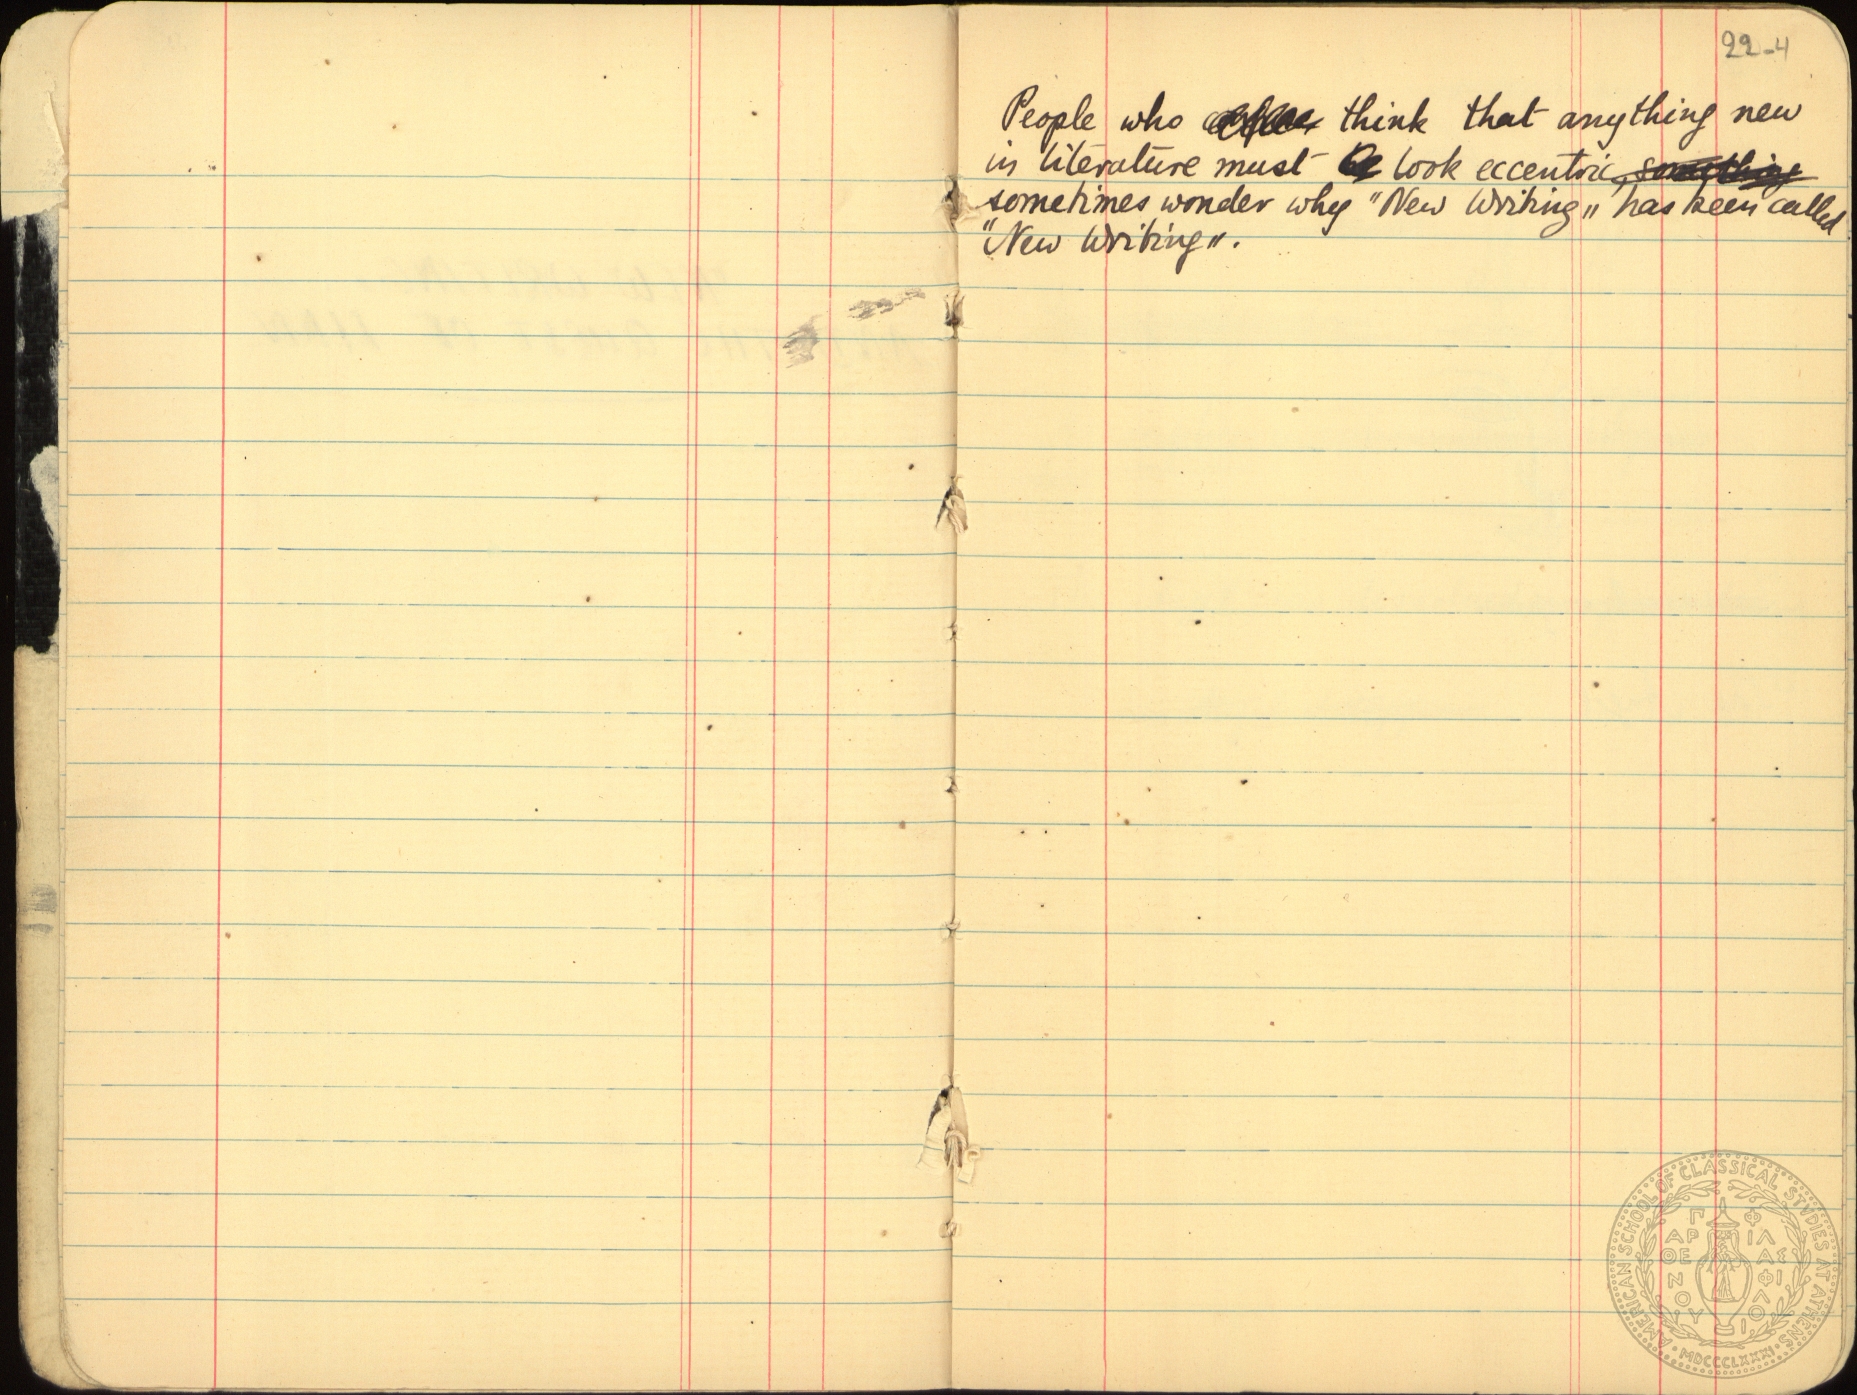 22-4
People who think that anything new
in literature must look eccentric, something
sometimes wonder why "New Writing" has been called
"New Writing".
AMERICAN SCHOOL OF CLASSICAL STVDIES AT ATHENS
ΠΑΡΘΕΝΟΥ ΦΙΛΑΣ ΦΙΛΟΙ
MDCCCLXXXI